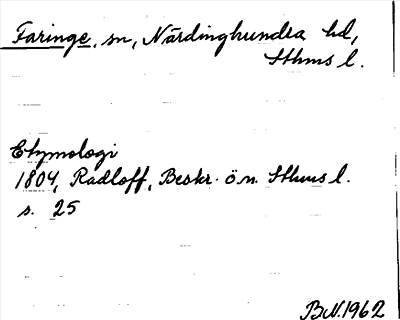 Faringe, sn, Närdinghundra hd,
Sthms l.
Etymologi
1804, Radloff, Beskr. ö. n. Sthms l.
s. 25
B.N.1962